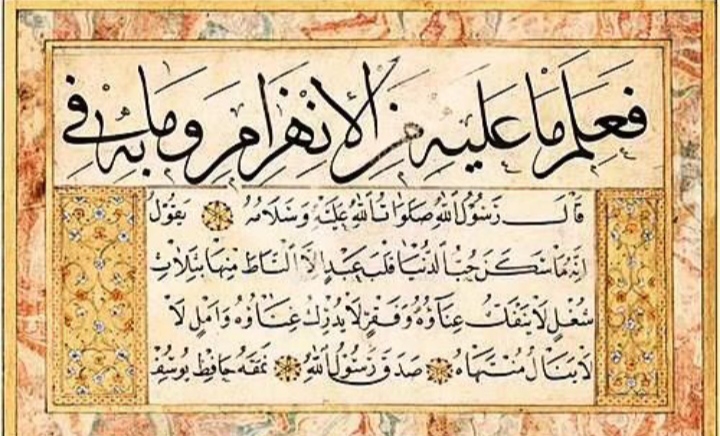 فعلم ما عليه من الانهزام وما به في
قال رسول الله صلوات الله عليه وسلامه يقول
انه ما سكن حب الدنيا قلب عبد الا التاط منها بثلاث
شغل لا ينفك عناؤه وفقر لا يدرك غناؤه وامل لا
لا ينال منتهاه صدق رسول الله نمقه حافظ يوسف